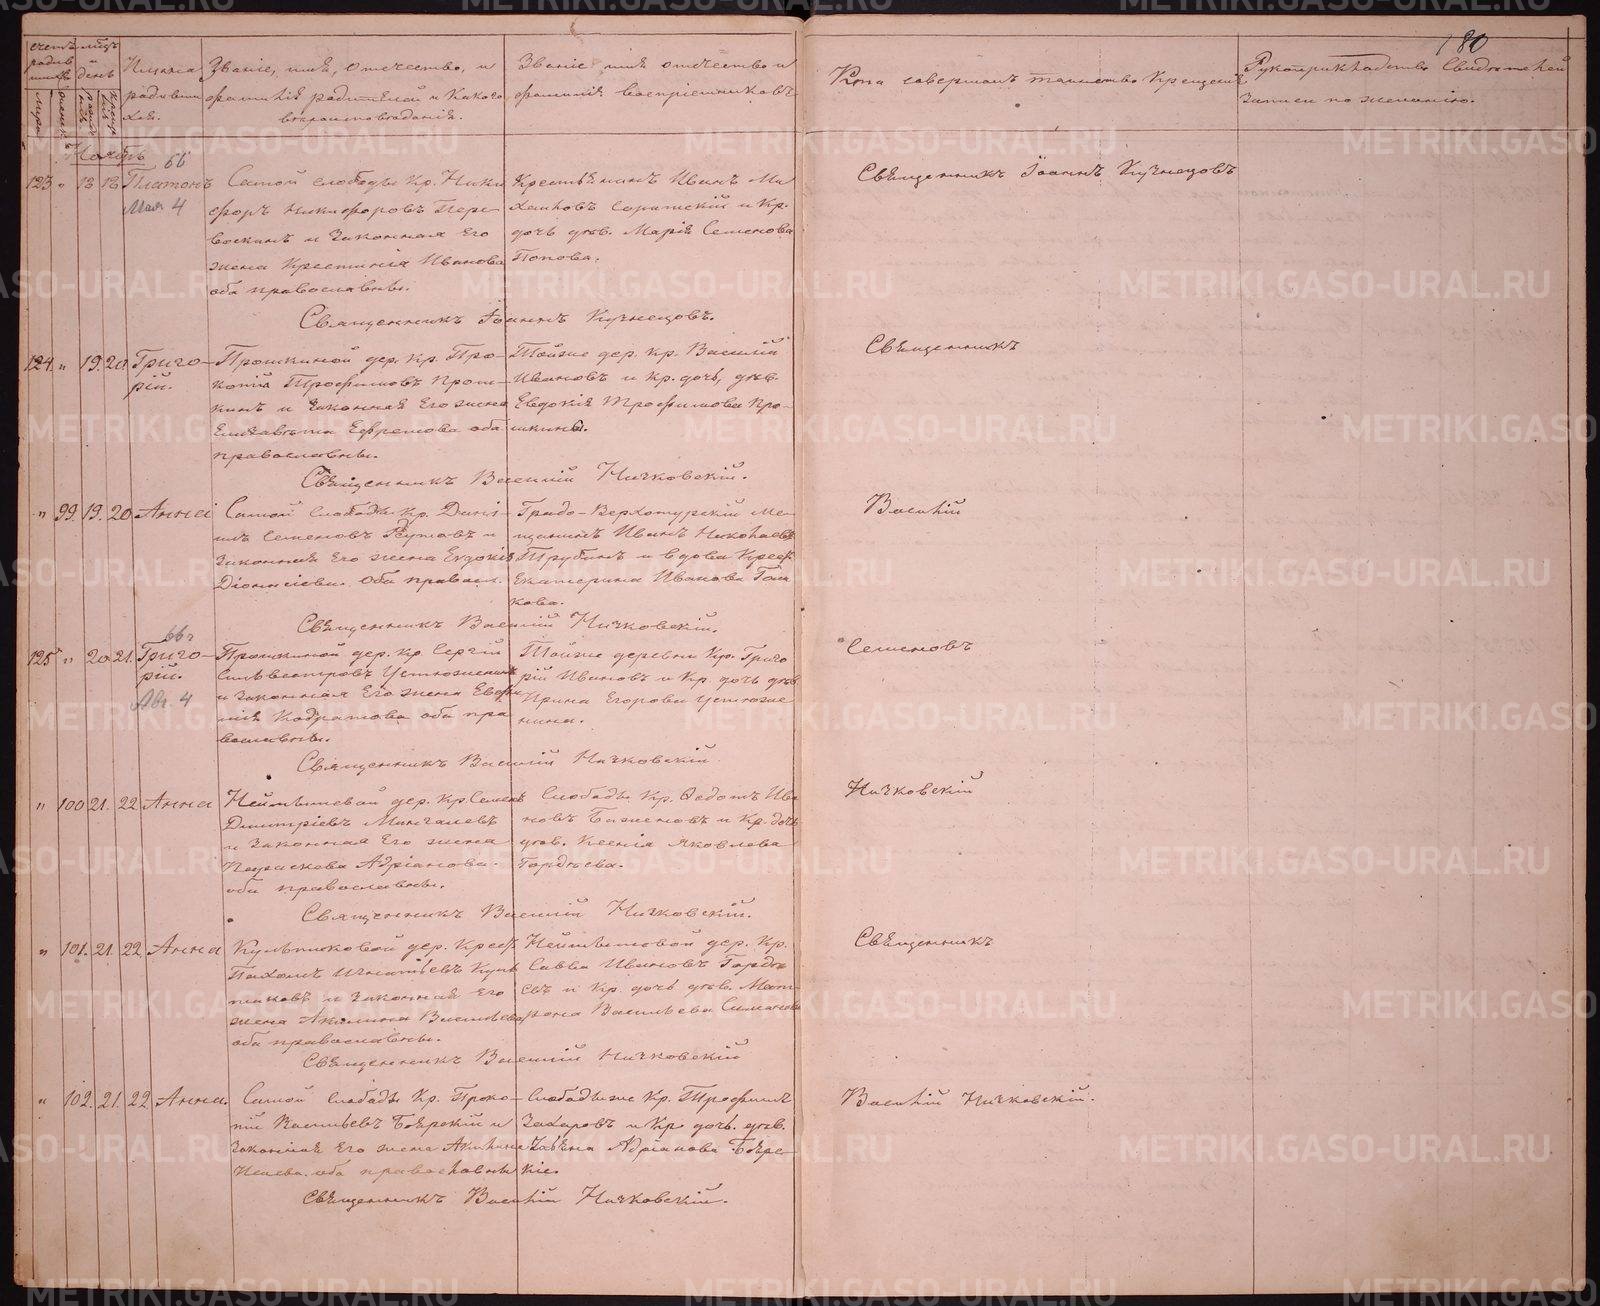 180
счетъ родив шихся
мѣсяцъ и день
Имена родивших ся.
Званіе, имя, отчество, и фамилія родителей и какого вѣроисповѣданія.
Званіе имя отчество и фамилія воспріемниковъ
Кто совершалъ таинство Крещенія
Рукоприкладство Свидѣтелей записи по желанію.
Ноябрь
66
123 " 13 13 Платонъ
Мая 4
Самой слободы Кр. Ники
форъ Никифоровъ Пер
воскинъ и законная его
жена Крестинія Иванова
оба православны.
Крестьянинъ Иванъ Ми
хаиловъ и Кр.
дочь дѣв. Марія Семенова
Попова.
Священникъ Іоаннъ Кузнецовъ
Священникъ Іоаннъ Кузнецовъ.
124. " 19. 20. Григо-
рій.
Прошкиной дер. Кр. Про-
копій Трофимовъ Прош-
кинъ и законная его жена
Елизавета Ефремова оба
православны.
Тойже дер. Кр. Василій
Ивановъ и Кр. дочь, дѣв.
Евдокія Трофимова Про-
шкины.
Священникъ
Священникъ Василій Ничковскій.
" 99. 19. 20 Анна
Самой Слободы Кр. Дани-
лъ Семеновъ и
законная его жена Евдокія
Діонисіева. Оба правосл.
Градо-Верхотурскій Ме-
щанинъ Иванъ Николаевъ
Трубинъ и вдова Крест.
Екатерина Иванова
кова.
Василій
Священникъ Василій Ничковскій.
66 г
125 " 20 21. Григо-
рій.
Авг. 4
Прошкиной дер. Кр. Сергій
Сильвестровъ Устюжанинъ
и законная Его жена Евфи
мія Кодратова оба пра
вославны.
Тойже деревни Кр. Григо
рій Ивановъ и Кр. дочь дѣв.
Ирина Егорова Устюжа
нина.
Семеновъ
Священникъ Василій Ничковскій
" 100 21. 22. Анна
дер. Кр. Семенъ
Дмитріевъ Мингалевъ
и законная его жена
Параскева Адріанова.
оба православны.
Слободы Кр. Ѳедотъ Ива
новъ Баженовъ и Кр. дочь
дѣв. Ксенія Яковлева
Гордѣева.
Ничковскій
Священникъ Василій Ничковскій.
" 101. 21. 22. Анна
дер. Крест.
Пахомъ Игнатьевъ
и законная его
жена Акилина Васильева
оба православны.
дер. Кр.
Савва Ивановъ Гордѣ
евъ и Кр. дочь дѣв. Мат-
рона Васильева Симанова
Священникъ
Священникъ Василій Ничковскій
" 102. 21. 22 Анна.
Самой Слободы Кр. Проко-
пій Васильевъ Боярскій и
законная его жена Акилина
оба православны
Слободы же Кр. Трофимъ
Захаровъ и Кр. дочь дѣв.
Адріанова Бояр-
кіе.
Василій Ничковскій.
Священникъ Василій Ничковскій.
METRIKI.GASO-URAL.RU